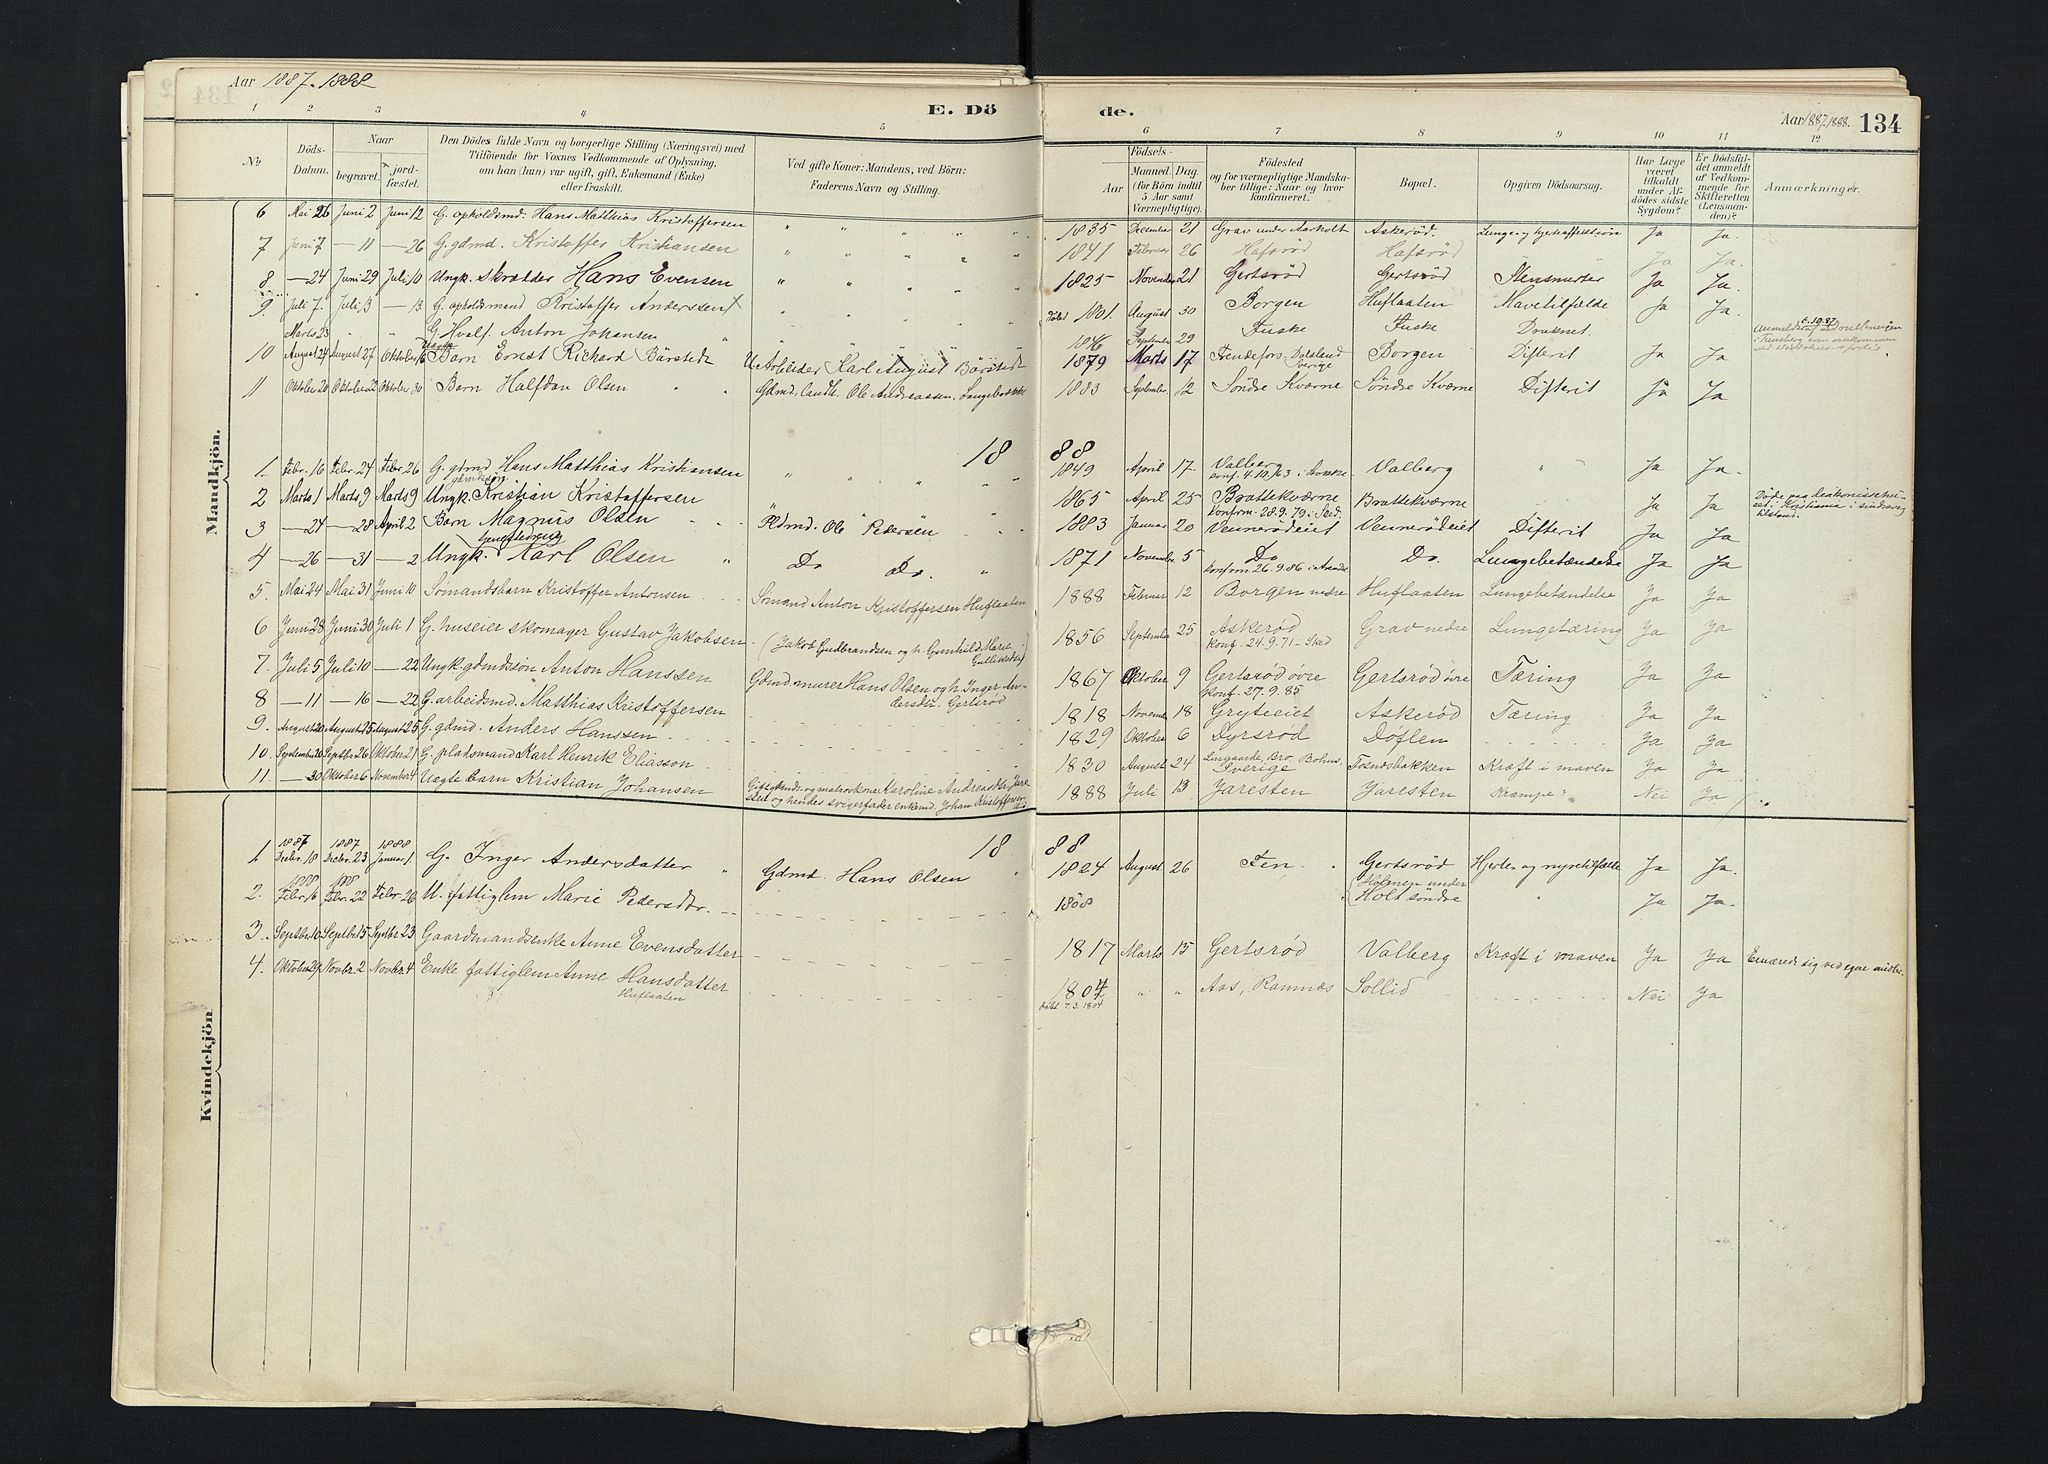 Aar 1887-1888
E. Dö
de.
Aar 1887-1888. 134
1 2 3 4 5 6 7 8 9 10 11 12
No. Döds-Datum. Naar begravet. jord-fæstet. Den Dödes fulde Navn og borgerlige Stilling (Næringsvei) med Tilföiende for Voxnes Vedkommende af Oplysning, om han (hun) var ugift, gift, Enkemand (Enke) eller fraskilt. Ved gifte Koner: Mandens, ved Börn: Faderens Navn og Stilling. Aar Födsels- Maaned. Dag. (for Börn indtil 5 Aar samt Værnepligtige). Födested og for værnepligtige Mandskaber tillige: Naar og hvor konfirmeret. Bopæl. Opgiven Dödsaarsag. Har Læge været tilkaldt under Afdödes sidste Sygdom? Er Dödsfaldet anmeldt af Vedkommende for Skifteretten (Lensmanden)? Anmærkninger.
Mandkjön.
6 Mai 26 Juni 2 Juni 12 G. opholdsmd. Hans Matthias Kristoffersen " " " " 1835 December 21 Grav under Aarholt Askeröd. Lunge- og hjerteaffektion Ja Ja.
7 Juni 7 — 11 — 26 G. gdmd. Kristoffer Kristiansen " " " " 1841 Februar 26 Hafsröd Hafsröd Ja Ja.
8 — 24 Juni 29 Juli 10 Ungk. skrædder Hans Evensen " " " " 1825 November 21 Gertsröd Gertsröd Stensmerter Ja Ja.
9 Juli 7. Juli 13 — 13 G. opholdsmand Kristoffer Anderssen 1801. August 30 Borgen Huflaaten Mavetilfælde Ja Ja.
Marts 23 " G. Hvalf. Anton Johansen 1846 September 29 Fuske Fuske Druknet. 6.10.87
10 August 24 August 27 Oktober 16 Uægte Barn Ernst Richard Börstedt U. Arbeider Karl August Börstedt 1879 Marts 17 Frendefors, Dalsland Sverige Borgen Difterit Ja Ja
11 Oktober 20 Oktober 22 Oktober 30 Barn Halfdan Olsen Gdmd, landh. Ole Andreassen. Langebækk 1883 September 12 Söndre Kværne Söndre Kværne Difterit Ja Ja
18 88
1. Febr. 16 Febr. 24 Febr. 26 G. gdmd Hans Matthias Kristiansen 1849 April 17. Valberg Valberg Ja Ja.
2 Marts 1 Marts 9 Marts 9 Ungk. gdmdsön Kristian Kristoffersen 1865 April 25 Brattekværne konfirm. 28.9.79 i Sked. Brattekværne Ja Ja Döde paa diakonissehuset i Kristiania
3 — 24 — 28 April 2 Barn Magnus Olsen Pldmd. Ole Pedersen 1883 Januar 20 Vennerödeiet Vennerödeiet Difterit Ja Ja
4 — 26 — 31 — 2 Ungk. Karl Olsen Do Do. 1871 November 5 Do konfirm 26.9.86 i Arends. Do. Lungebetændelse Ja Ja
5. Mai 24 Mai 31 Juni 10 Sömandsbarn Kristoffer Antonsen Sömand Anton Kristoffersen Huflaaten 1888 Februar 12 Borgen nedre Huflaaten Lungebetændelse Ja Ja
6 Juni 28 Juni 30 Juli 1 G. huseier skomager Gustav Jakobsen (Jakob Gudbrandsen og h. Gunhild Marie Gulliksdtr) 1856 September 25 Askeröd Konf. 24.9.71 - Sked Grav nedre Lungetæring Ja Ja
7. Juli 5 Juli 10 — 22 Ungk. gdmdssön Anton Hanssen Gdmd murer Hans Olsen og h. Inger Andersdtr. Gertsröd 1867 Oktober 9 Gertsröd övre Konf. 27.9.85 Gertsröd övre Tæring Ja Ja
8 — 11 — 16 — 22 G. arbeidsmd. Matthias Kristoffersen 1818 November 18 Gryteeiet Askeröd Tæring Ja Ja
9. August 20 August 25 August 25 G. gdmd. Anders Hanssen 1829 Oktober 6 Dyrsröd Döflen Ja Ja
10. September 20 Septbr 26 Oktober 21 G. pladsmand Karl Henrik Eliasson 1830 August 24 Lingaarde, Bro, Bohus, Sverige Fosnæsbakken Kræft i maven Ja Ja
11. — 30 Oktober 6 November 4 Uægte barn Kristian Johansen Gift gdmds. og matroskone Karoline Andreasdtr, Jaresten og hendes svigerfader enkemd. Johan Kristoffersen 1888 Juli 13 Jaresten Jaresten Krampe Nei Ja
Kvindekjön.
18 88
1. 1887 Decbr. 18 1887 Decbr. 23 1888 Januar 1 G. Inger Andersdatter " Gdmd. Hans Olsen 1824 August 26 Fen Gertsröd Hjerte- og nyretilfælle Ja Ja.
2. 1888 Febr. 16 1888 Febr. 22 Febr 26 U. fattiglem Marie Pedersdtr. 1808 Holmen under Holt söndre Ja Ja.
3. Septbr. 10 Septbr. 15 Septbr 23 Gaardmandsenke Anne Evensdatter 1817 Marts 15 Gertsröd Valberg Kræft i maven Ja Ja Ernærede sig ved egne midler
4. Oktober 29 Novbr. 2 Novbr. 4 Enke fattiglem Anne Hansdatter Huflaaten 1804 Födt 7.3.1804 " " Aas, Ramnæs Sollid Nei Ja